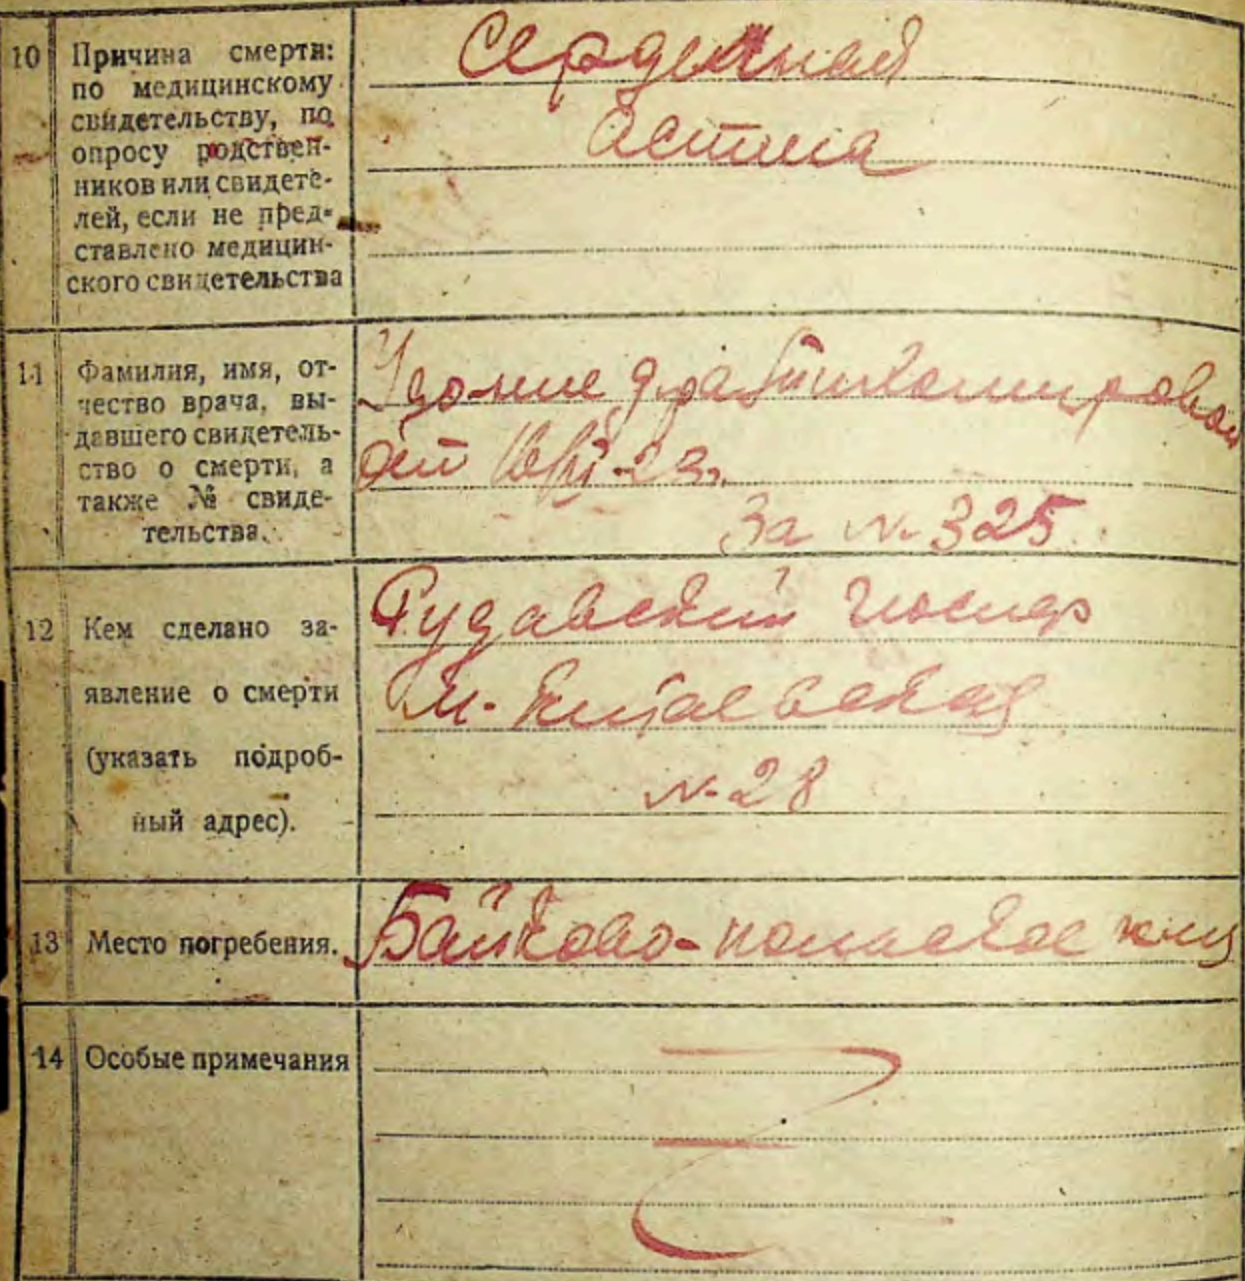 10
Причина смерти:
по медицинскому
свидетельству, по
опросу родствен-
ников или свидете-
лей, если не пред-
ставлено медицин-
ского свидетельства
Сердечная
астма
11
Фамилия, имя, от-
чество врача, вы-
давшего свидетель-
ство о смерти, а
также № свиде-
тельства.
За № 325
12
Кем сделано за-
явление о смерти
(указать подроб-
ный адрес).
Рудавский
М-Китаевская
№ 28
13
Место погребения.
Байково-польское
14
Особые примечания